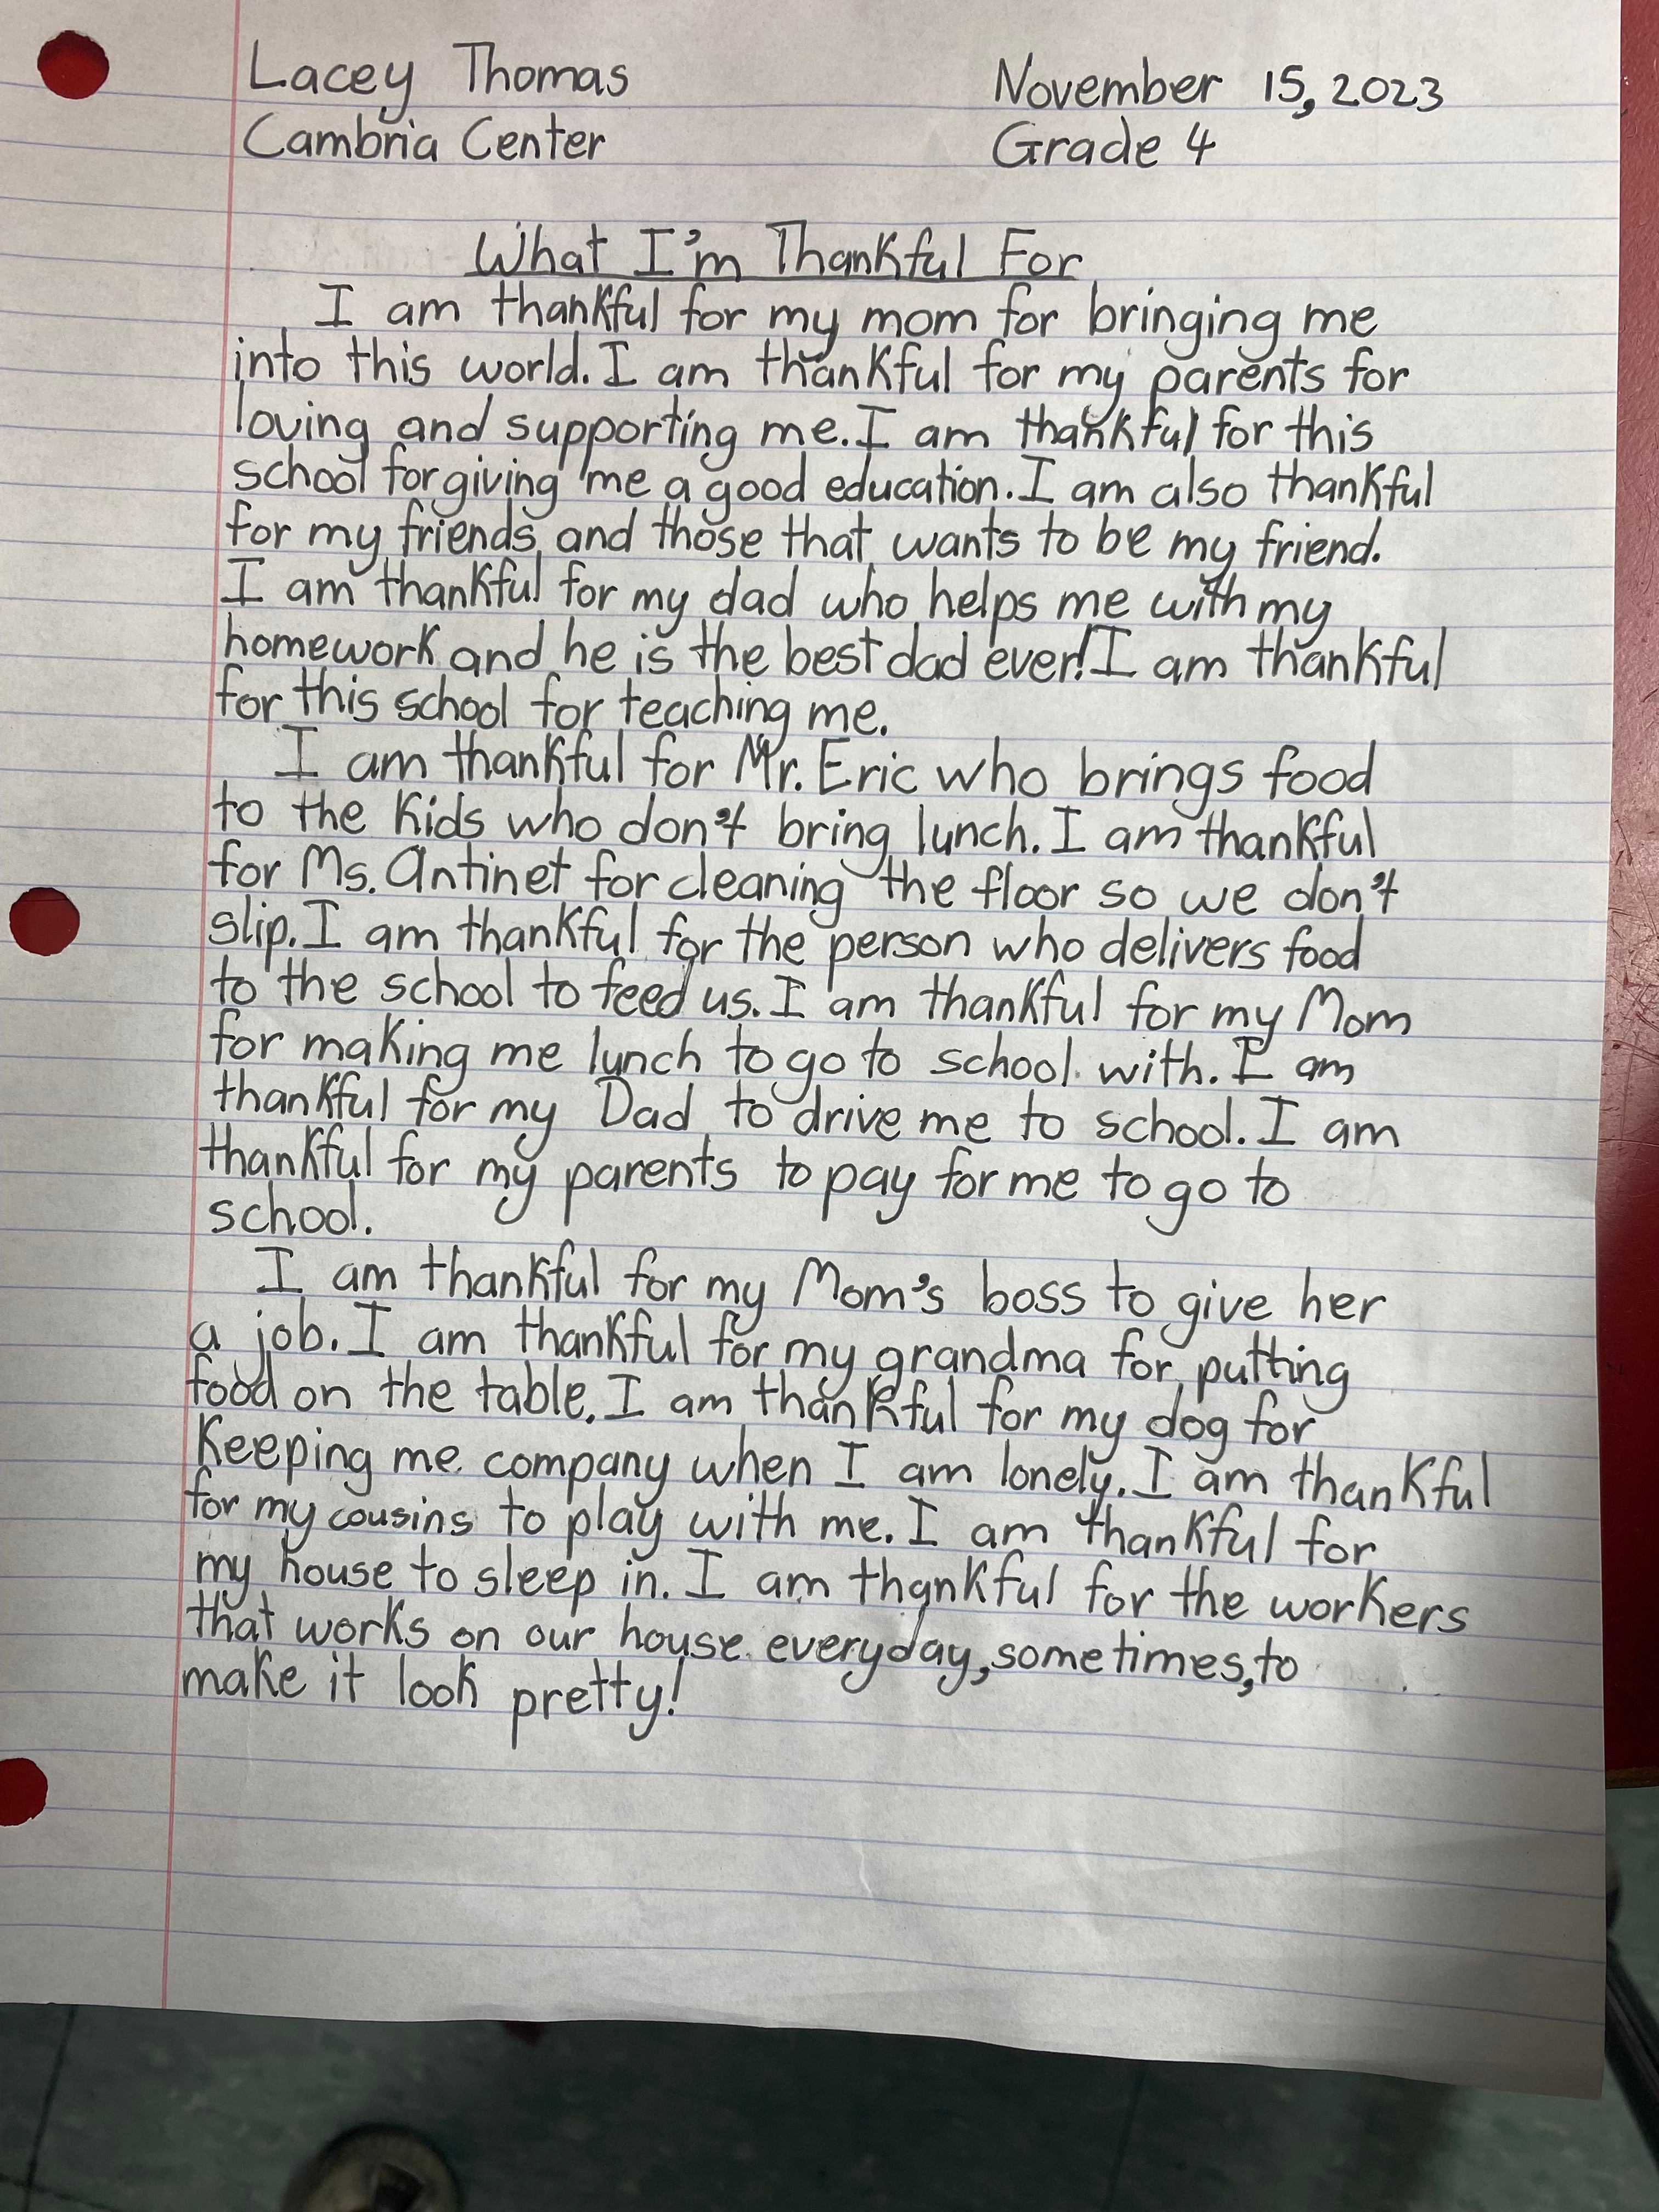 Lacey Thomas November 15, 2023
Cambria Center Grade 4
What I'm Thankful For
I am thankful for my mom for bringing me
into this world. I am thankful for my parents for
loving and supporting me. I am thankful for this
school for giving me a good education. I am also thankful
for my friends and those that wants to be my friend.
I am thankful for my dad who helps me with my
homework and he is the best dad ever! I am thankful
for this school for teaching me.
I am thankful for Mr. Eric who brings food
to the kids who don't bring lunch. I am thankful
for Ms. Antinet for cleaning the floor so we don't
slip. I am thankful for the person who delivers food
to the school to feed us. I am thankful for my Mom
for making me lunch to go to school with. I am
thankful for my Dad to drive me to school. I am
thankful for my parents to pay for me to go to
school.
I am thankful for my Mom's boss to give her
a job. I am thankful for my grandma for putting
food on the table. I am thankful for my dog for
Keeping me company when I am lonely. I am thankful
for my cousins to play with me. I am thankful for
my house to sleep in. I am thankful for the workers
that works on our house everyday, sometimes, to
make it look pretty!